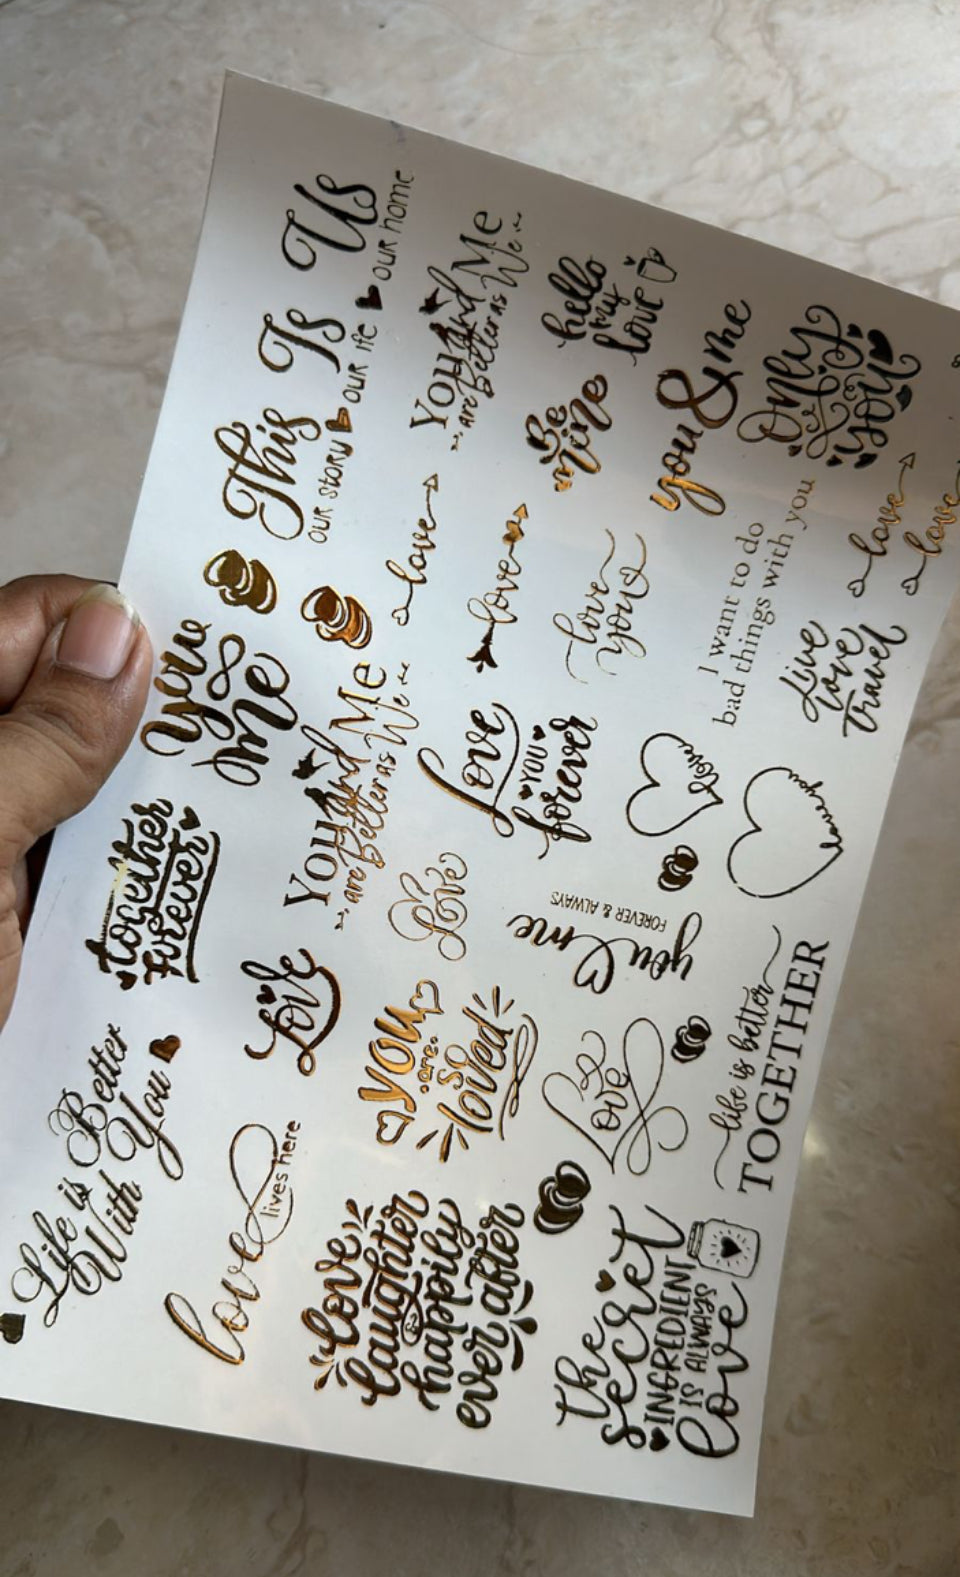 This Is Us
our story our life our home
You And Me
are Better as We
hello
my
love
you
me
Be
mine
you & me
Only
you
love
love
love
you
I want to do
bad things with you
love
love
Live
love
travel
together
forever
You And Me
are Better as We
Love
YOU
forever
love
Love
you me
FOREVER & ALWAYS
Life is Better
With You
Love
you
are
so
loved
Love
life is better
TOGETHER
love
lives here
love
laughter
&
happily
ever after
the
secret
INGREDIENT
IS ALWAYS
love